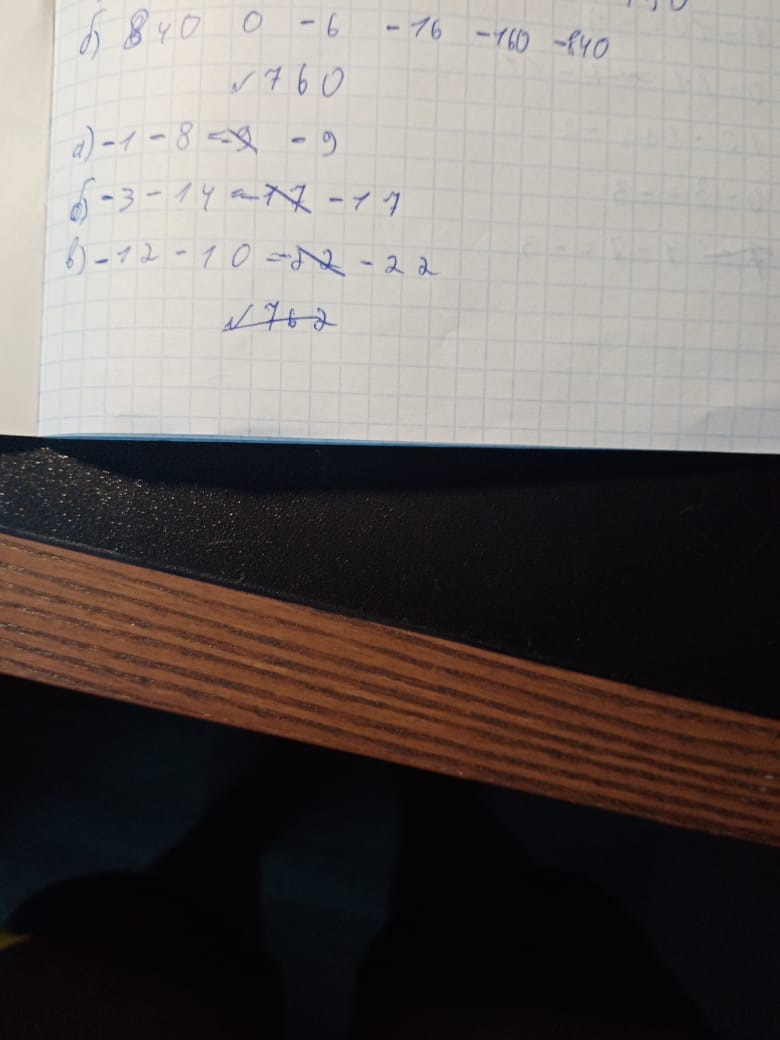 б) 840 0 -6 -16 -160 -840
№760
а) -1 - 8 = -9 -9
б) -3 - 14 = -17 -17
в) -12 - 10 = -22
№762